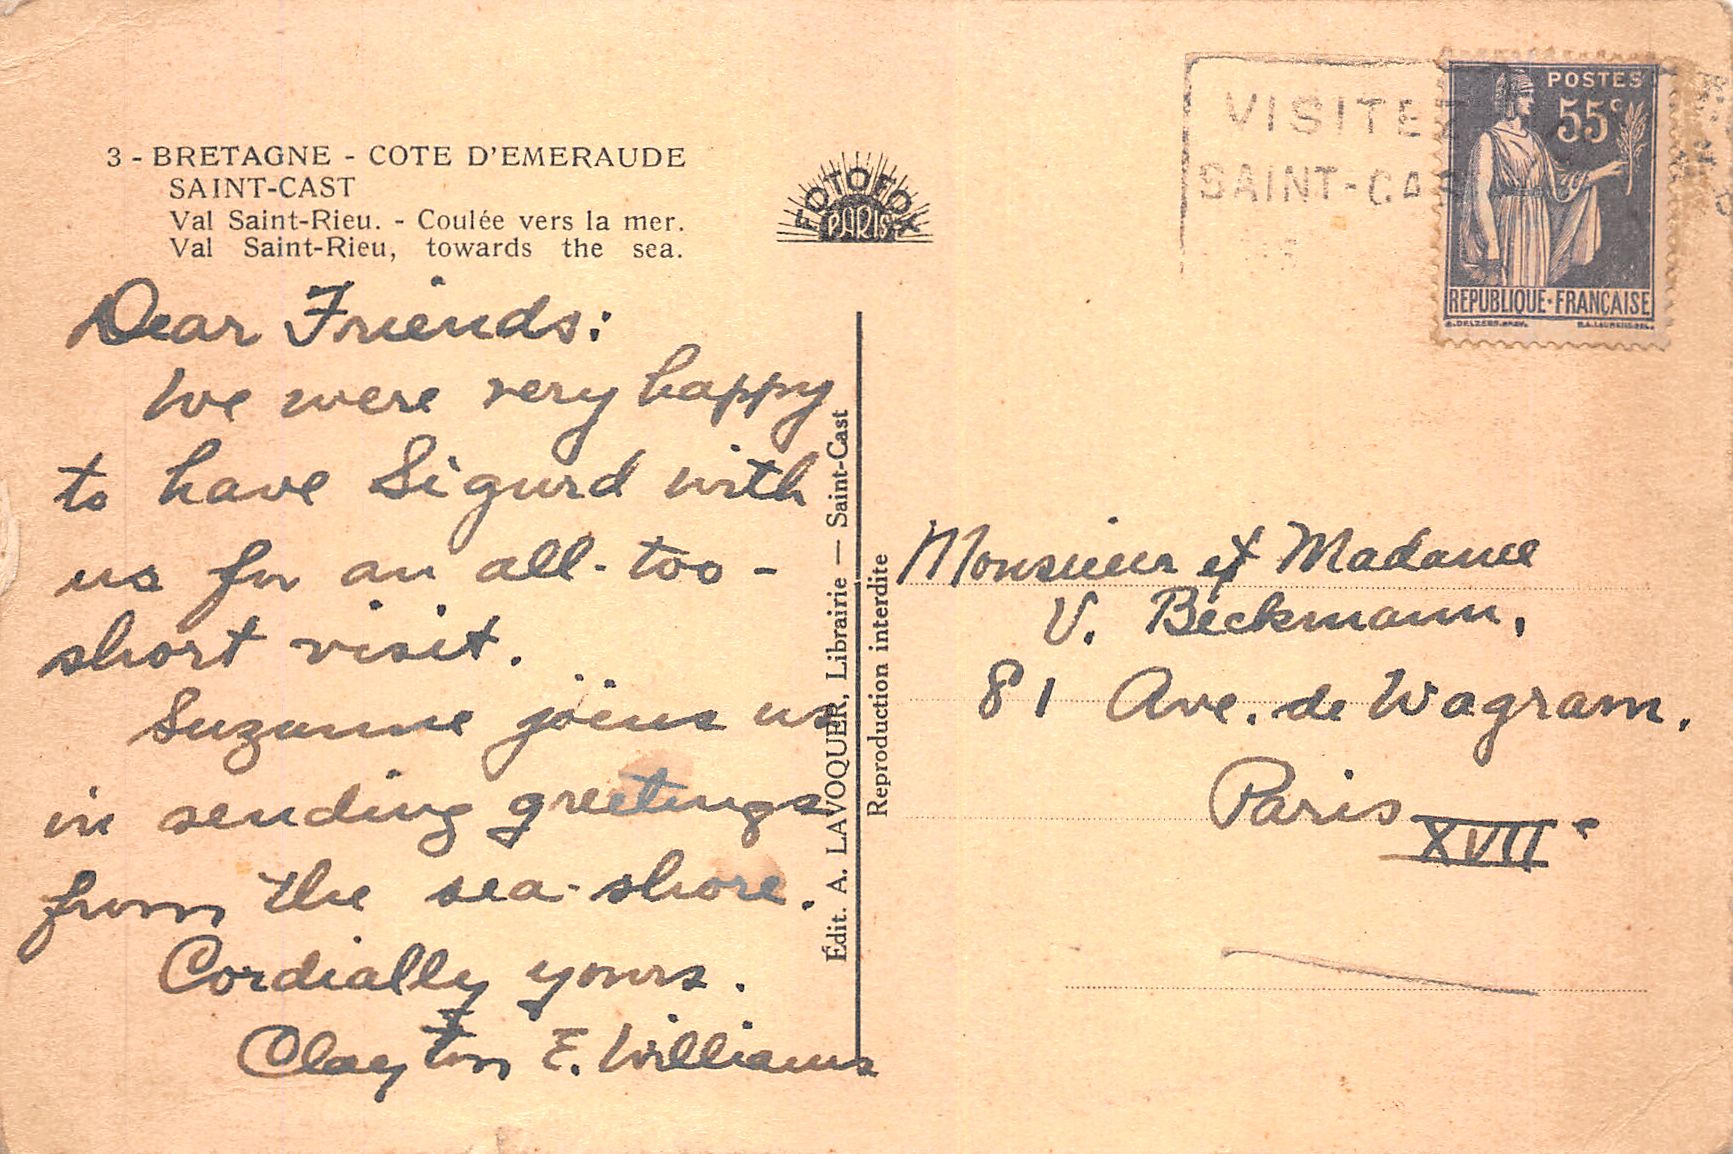 3 - BRETAGNE - COTE D'EMERAUDE
SAINT-CAST
Val Saint-Rieu. - Coulée vers la mer.
Val Saint-Rieu, towards the sea.
FOTOFOX
PARIS
Dear Friends:
We were very happy
to have Sigurd with
us for an all-too-
short visit.
Suzanne joins us
in sending greetings
from the sea-shore.
Cordially yours.
Clayton E. Williams
Édit. A. LAVOQUER, Librairie — Saint-Cast
Reproduction interdite
VISITEZ
SAINT-CAS
POSTES
55c
REPUBLIQUE·FRANÇAISE
Monsieur et Madame
V. Béckmann,
81 Ave. de Wagram.
Paris XVIIe